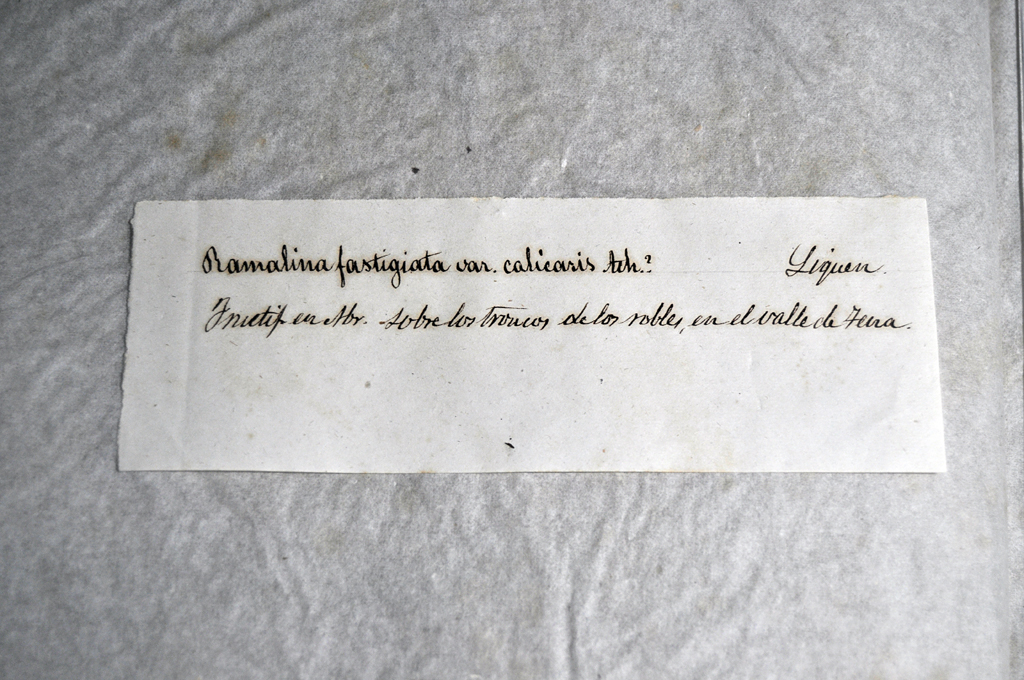 Ramalina fastigiata var. calicaris Ach.? Liquen.
Fructif en Abr. sobre los troncos de los robles, en el valle de Tena.